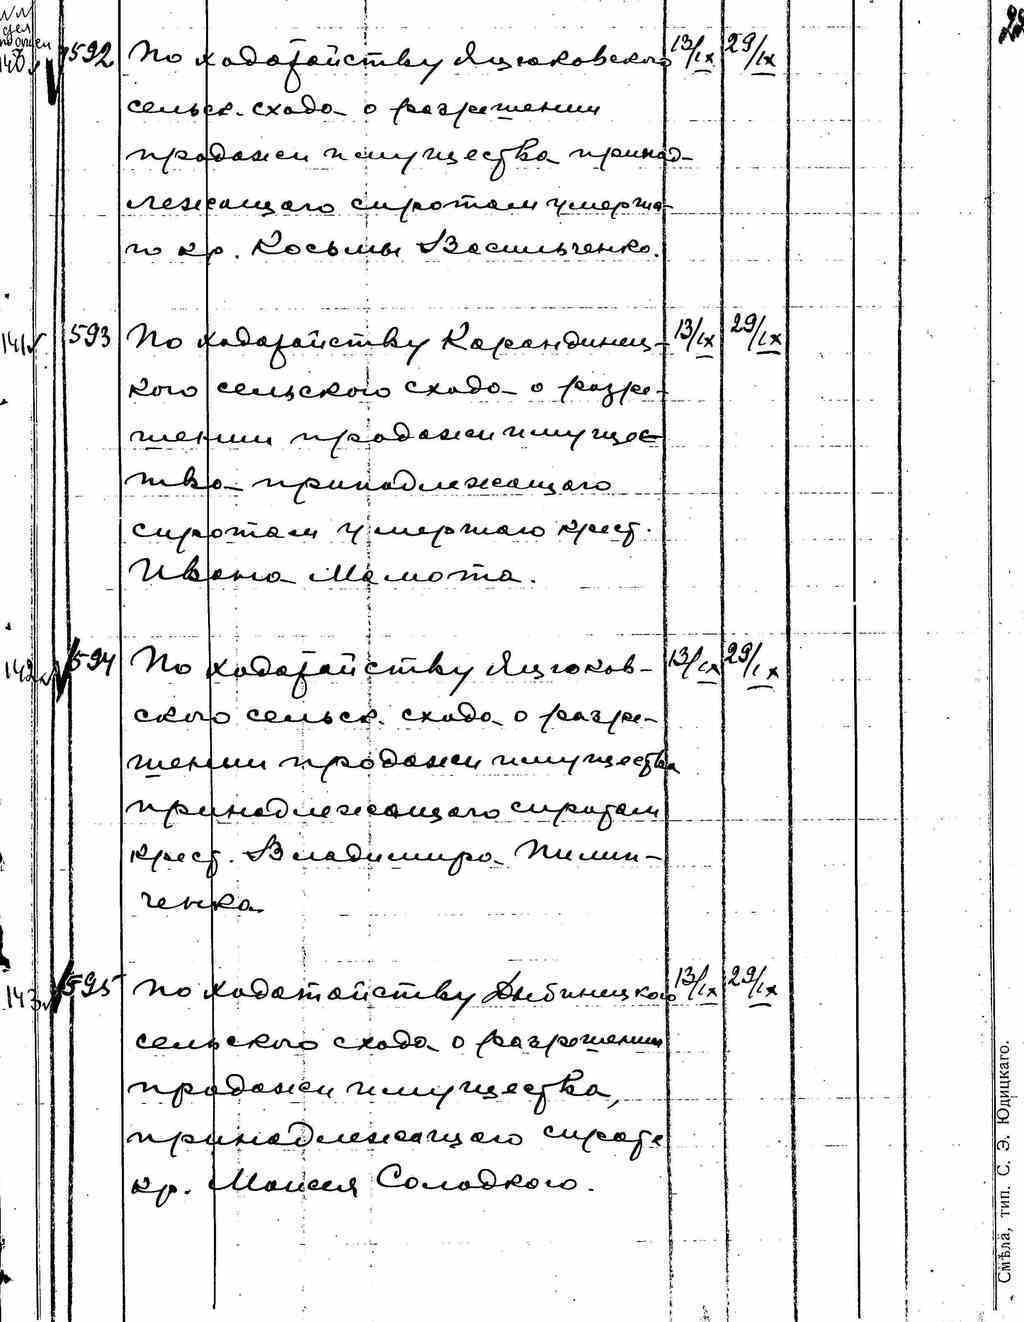 NN
дел
по описи
140 592 По ходатайству Яцюковского 13/IX 29/IX
сельск. схода о разрешении
продажи имущества принад-
лежащаго сиротам умерша-
го кр. Косьмы Васильченко.
141 593 По ходатайству Карандинец- 13/IX 29/IX
кого сельского схода о разре-
шении продажи имущес-
тва принадлежащаго
сиротам умершаго крест.
Ивана Мамота.
142 594 По ходатайству Яцюков- 13/IX 29/IX
ского сельск. схода о разре-
шении продажи имущества
принадлежащаго сиротам
крест. Владимира Пилип-
ченка
143 595 По ходатайству Дыбинецкого 13/IX 29/IX
сельского схода о разрешении
продажи имущества,
принадлежащаго сироте
кр. Моисея Солодкого.
Смѣла, тип. С. Э. Юдицкаго.